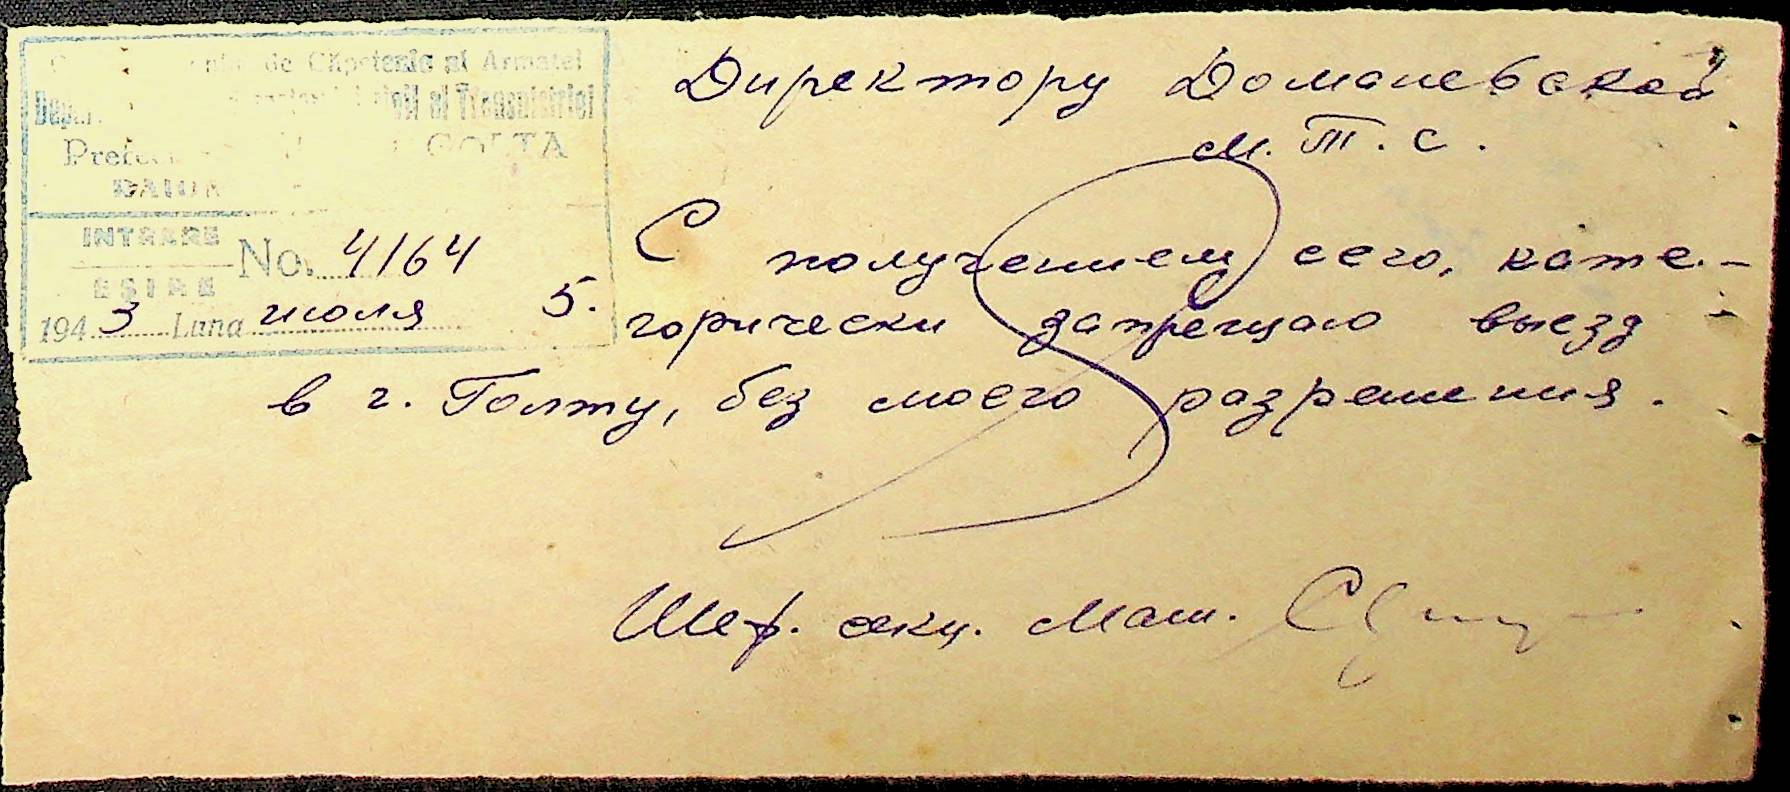 de Căpetenie al Armatei
al Transnistriei
GOLTA
INTRARE
No. 4164
ESIRE
1943 Luna июля 5.
Директору Доманевской
М.Т.С.
С получением сего, кате-
горически запрещаю выезд
в г. Голту, без моего разрешения.
Шеф. секц. Маш.